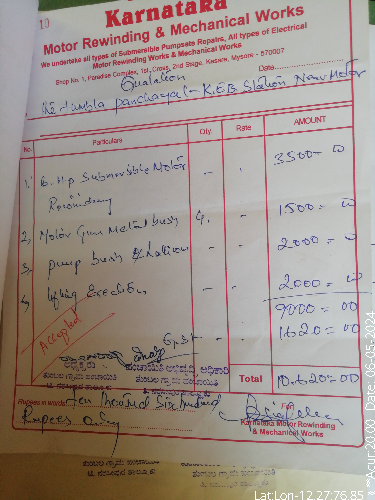 10
Karnataka
Motor Rewinding & Mechanical Works
We undertake all types of Submersible Pumpsets Repairs, All types of Electrical
Motor Rewinding Works & Mechanical Works
Shop No. 1, Paradise Complex, 1st Cross, 2nd Stage, Kesare, Mysore - 570007
Date
Quatation
panchayat - K.E.B Station Near Motor
No. Particulars Qty. Rate AMOUNT
1, 6. H.p Submersible Motor 3500=00
Rewinding
2, Motor Gun Metal bush 4. 1500=00
3, pump bush 2000=00
4, lifting Erection 2000=00
9000=00
Gst. 1620=00
Accepted
Total 10.620=00
ಅಧ್ಯಕ್ಷರು ಪಂಚಾಯಿತಿ ಅಭಿವೃದ್ಧಿ ಅಧಿಕಾರಿ
Rupees in words Ten Six Hundred
Rupees only
For
Karnataka Motor Rewinding
& Mechanical Works
Acur:20.00 Date: 06-05-2024
Lat:Lon-12.27:76.85